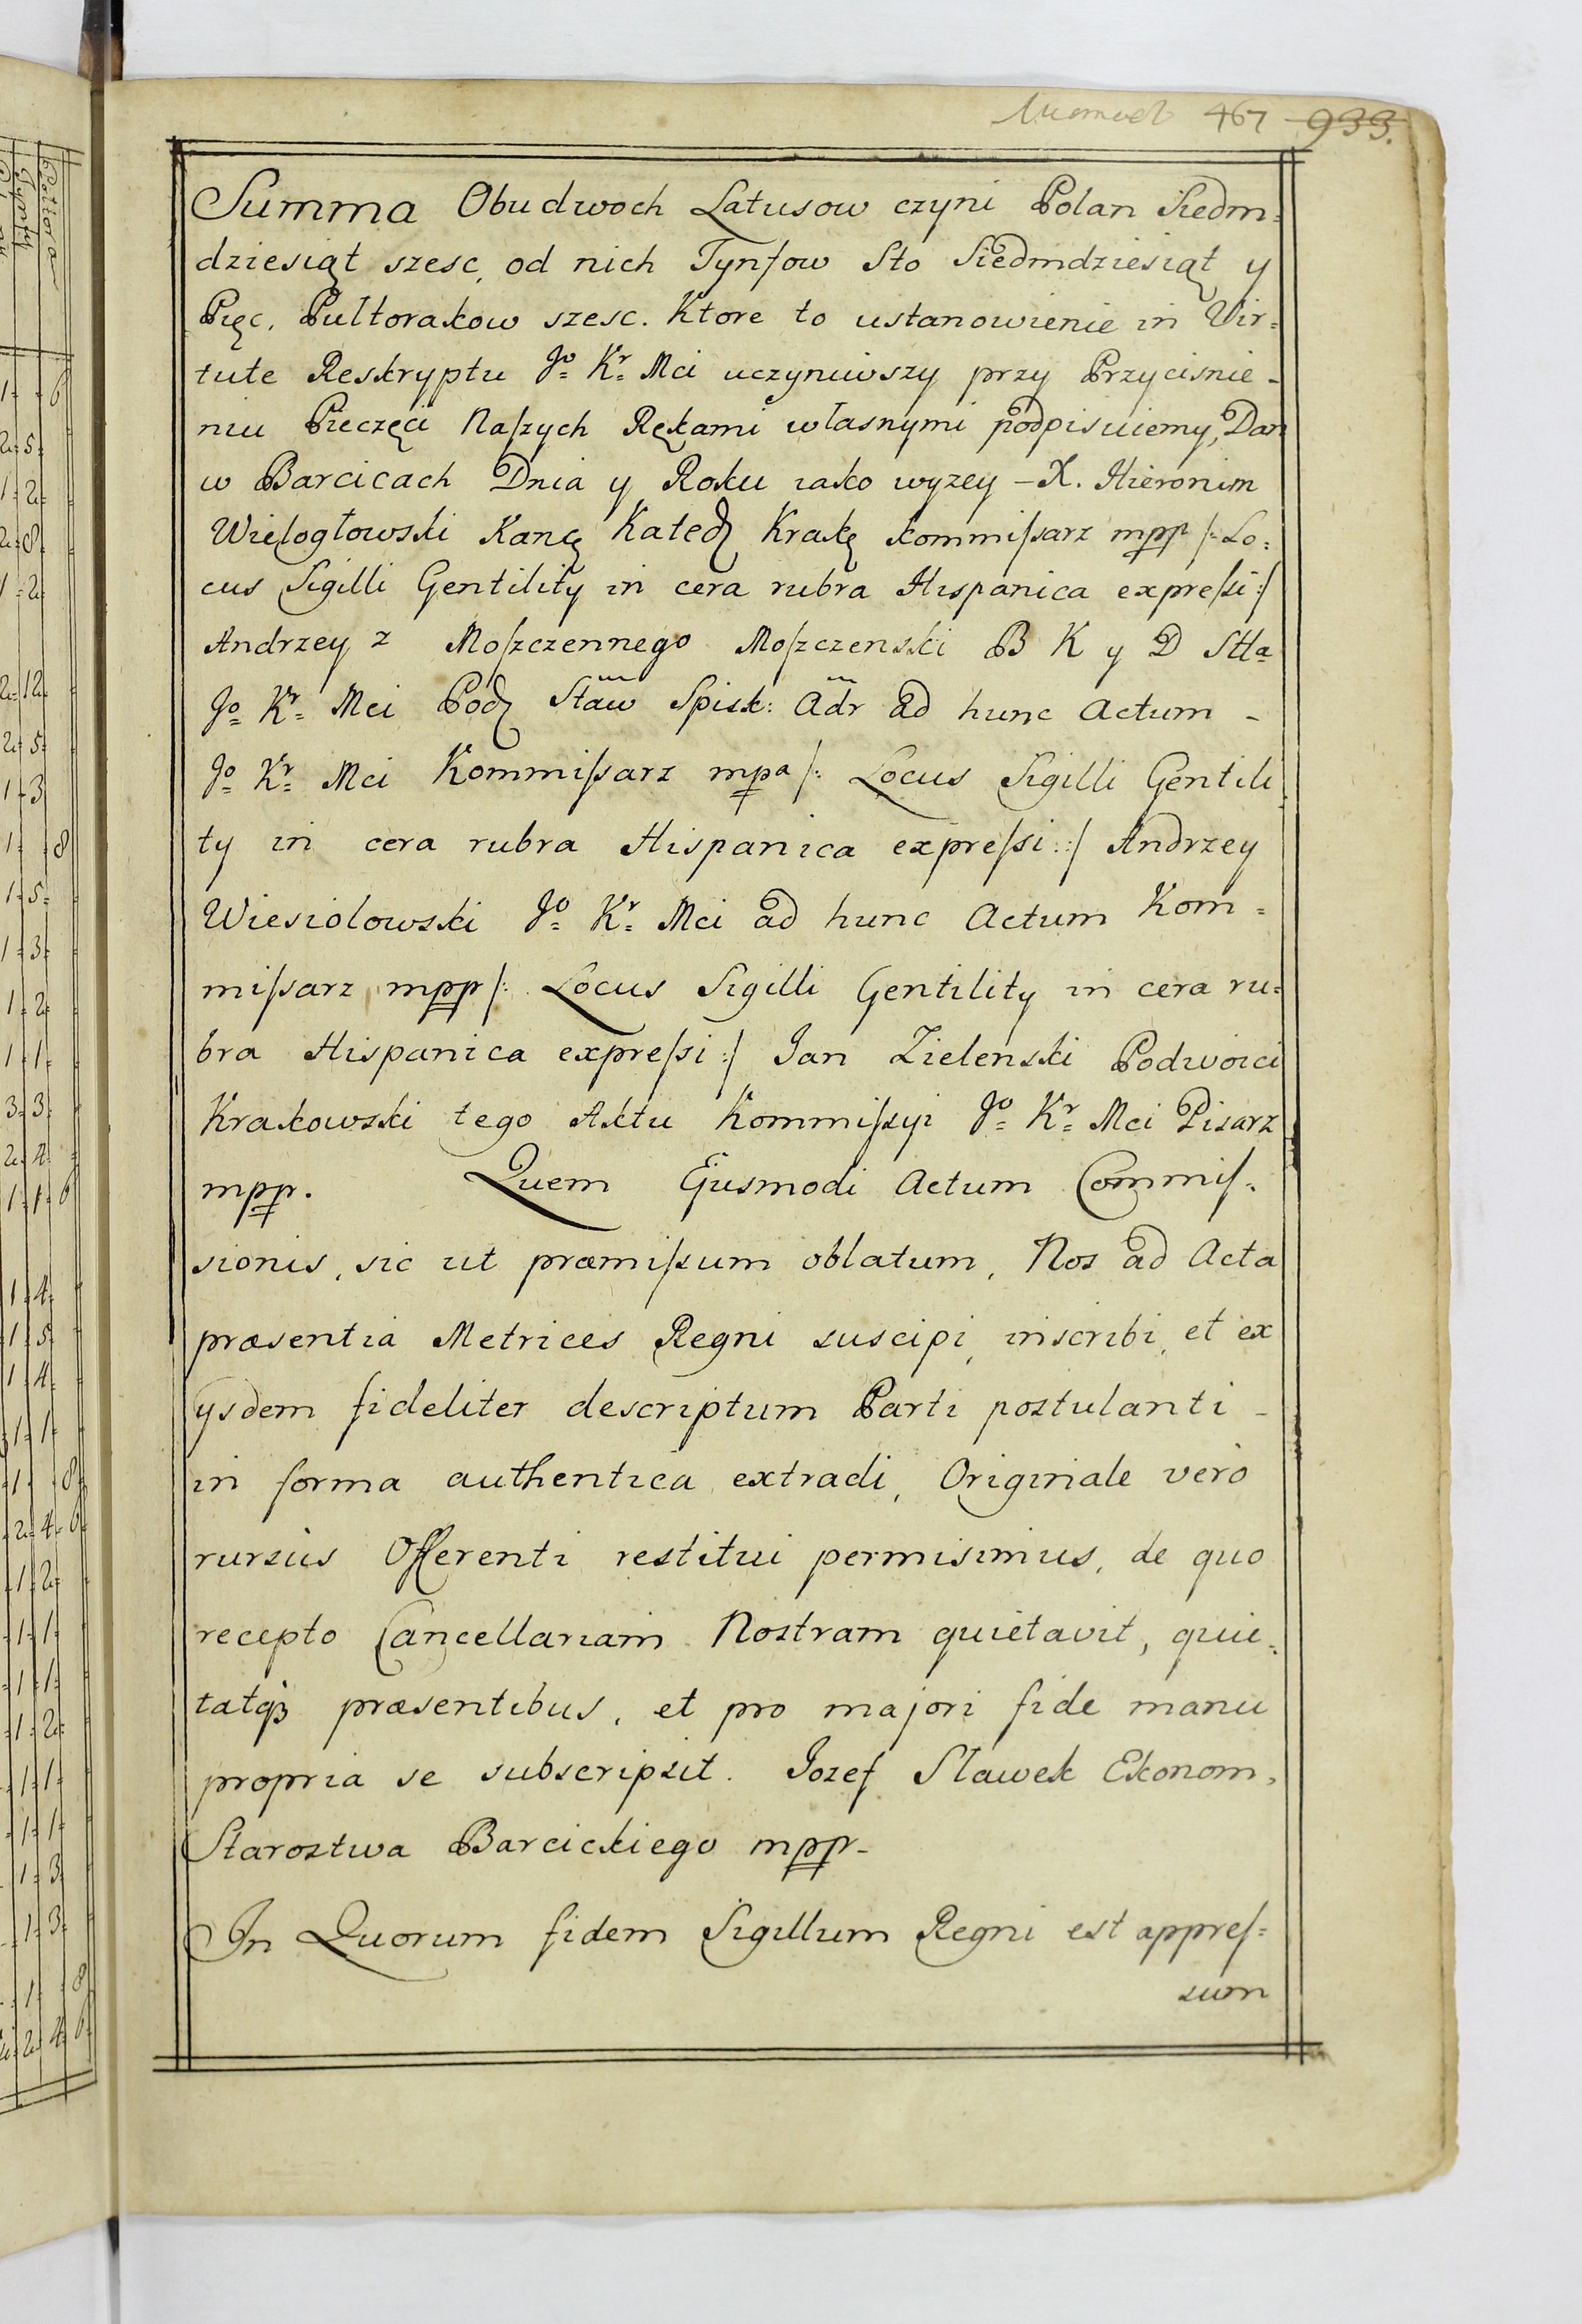 467 933.
Summa Obudwoch Latusow czyni Polan Siedm=
dziesiąt szesc, od nich Tynfow Sto Siedmdziesiąt y
Pięc, Pułtorakow szesc. Ktore to ustanowienie in Vir=
tute Reskryptu Jo= Kr= Mci uczyniwszy przy Przycisnie-
niu Pieczęci Naſzych Rękami własnymi podpisuiemy, Dan
w Barcicach Dnia y Roku iako wyzey – X. Hieronim
Wielogłowski Kanę Kated Krakę kommiſsarz mpp /: Lo=
cus Sigilli Gentility in cera rubra Hispanica expreſsi :/
Andrzey z Moſzczennego Moſzczenski B K y D Stta
Jo= Kr= Mci Pod Staw Spisk: Adr ad hunc Actum -
Jo= Kr= Mci Kommiſsarz mpa /: Locus Sigilli Gentili
ty in cera rubra Hispanica expreſsi :/ Andrzey
Wiesiolowski Jo= Kr= Mci ad hunc Actum Kom=
miſsarz mpp /: Locus Sigilli Gentility in cera ru=
bra Hispanica expreſsi :/ Jan Zielenski Podwoici
Krakowski tego Aktu Kommiſsyi Jo= Kr= Mci Pisarz
mpp. Quem Ejusmodi Actum Commiſ=
sionis, sic ut præmiſsum oblatum, Nos ad Acta
præsentia Metrices Regni suscipi, inscribi, et ex
ysdem fideliter descriptum Parti postulanti -
in forma authentica extradi, Originale verò
rursùs Offerenti restitui permisimus, de quo
recepto Cancellariam Nostram quietavit, quie=
tatqꝫ præsentibus, et pro majori fide manu
propria se subscripsit. Jozef Sławek Ekonom,
Starostwa Barcickiego mpp-
In Quorum fidem Sigillum Regni est appreſ=
sum